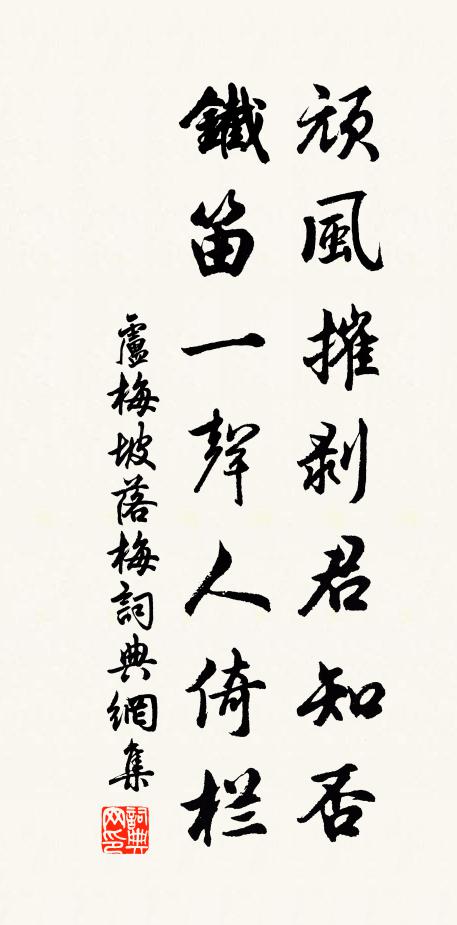 頑風摧剥君知否
鐵笛一聲人倚栏
盧梅坡落梅詞典網集
詞典网印